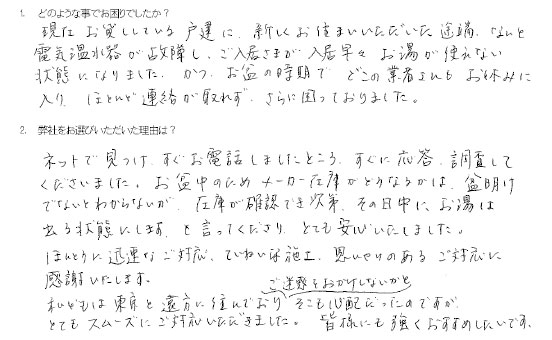 1. どのような事でお困りでしたか？
現在 お貸ししている 戸建に、新しくお住まいいただいた途端、なんと
電気温水器が故障し、ご入居さまが入居早々 お湯が使えない
状態になりました。かつ、お盆の時期で どこの業者さんも お休みに
入り、ほとんど連絡が取れず、さらに困っておりました。
2. 弊社をお選びいただいた理由は？
ネットで見つけ、すぐお電話しましたところ、すぐに応答、調査して
くださいました。お盆中のため メーカー在庫がどうなるかは、盆明け
でないとわからないが、在庫が確認でき次第、その日中に、お湯は
出る状態にします、と言ってくださり、とても安心いたしました。
ほんとうに迅速なご対応、ていねいな施工、思いやりのある ご対応に
感謝いたします。
ご迷惑をおかけしないかと
私どもは東京と遠方に住んでおり そこも心配だったのですが、
とてもスムーズにご対応いただきました。皆様にも強くおすすめしたいです。